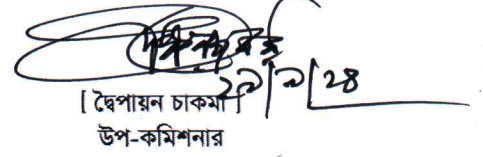 ২৯|৯|২৪
[ দ্বৈপায়ন চাকমা ]
উপ-কমিশনার